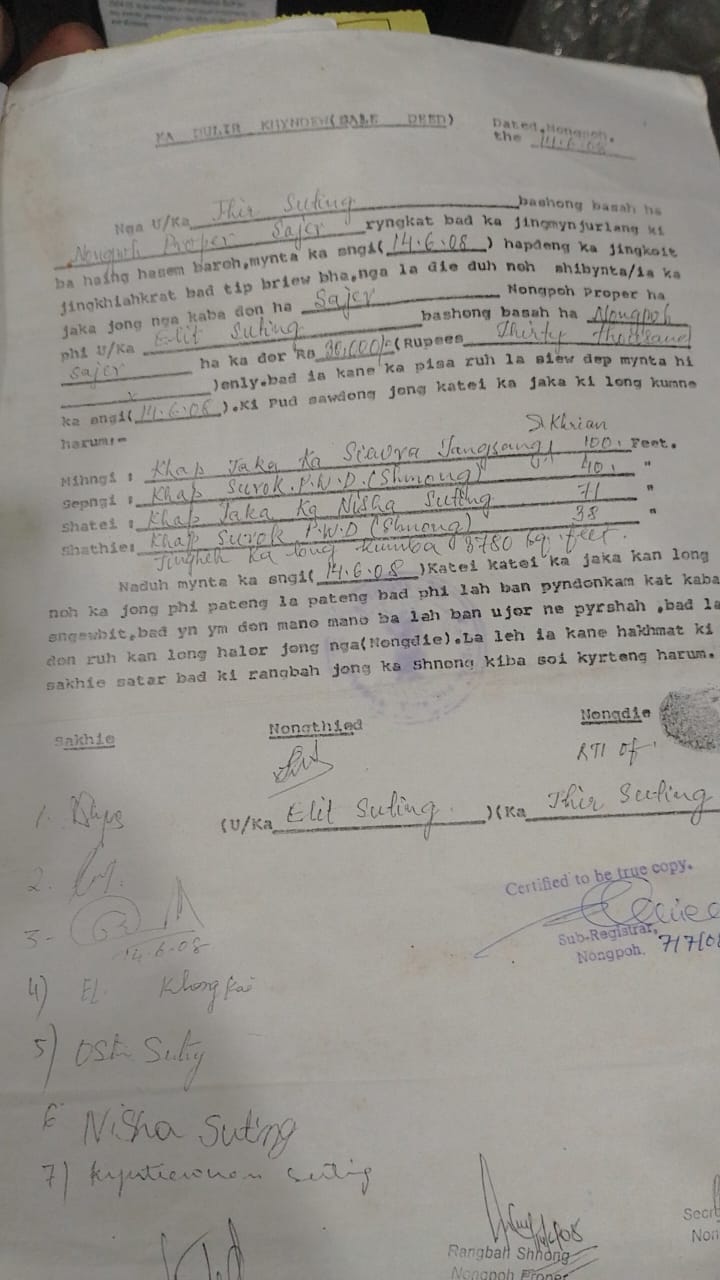 KA DULIR KHYNDEW(SALE DEED)
Dated, Nongpoh.
the 14.6.08
Nga U/Ka Thir Suting bashong basah ha
Nongpoh Proper Sajer ryngkat bad ka jingmynjurlang ki
ba haing hasem baroh,mynta ka sngi(14.6.08) hapdeng ka jingkoit
jingkhiahkrat bad tip briew bha,nga la die duh noh shibynta/ia ka
jaka jong nga kaba don ha Sajer Nongpoh Proper ha
phi U/Ka Elit Suting bashong basah ha Nongpoh
Sajer ha ka dor Rs 30,000/-(Rupees Thirty Thousand
x )only.bad ia kane ka pisa ruh la siew dep mynta hi
ka sngi(14.6.08).Ki Pud sawdong jong katei ka jaka ki long kumne
harum:-
Mihngi : Khap Jaka Ka 100. Feet.
Sepngi : Khap Surok.P.W.D.(Shnong) 40. "
Shatei : Khap Jaka Ka Nisha Suting 71 "
Shathie: Khap Surok P.W.D (Shnong) 38 "
Jingheh Ka long kumba 3780 sq. feet.
Naduh mynta ka sngi(14.6.08)Katei katei ka jaka kan long
noh ka jong phi pateng la pateng bad phi lah ban pyndonkam kat kaba
sngewbit,bad yn ym don mano mano ba lah ban ujor ne pyrshah ,bad la
don ruh kan long halor jong nga(Nongdie).La leh ia kane hakhmat ki
sakhie satar bad ki rangbah jong ka shnong kiba soi kyrteng harum.
Sakhie Nongthied Nongdie
RTI of
(U/Ka Elit Suting. )(Ka Thir Suting
1.
2.
3-
14.6.08
Certified to be true copy.
Sub-Registrar,
Nongpoh. 7/7/08
4)
5) Suting
6 Nisha Suting
7) Suting
Rangbah Shnong
Nongpoh Proper
Secr
Non